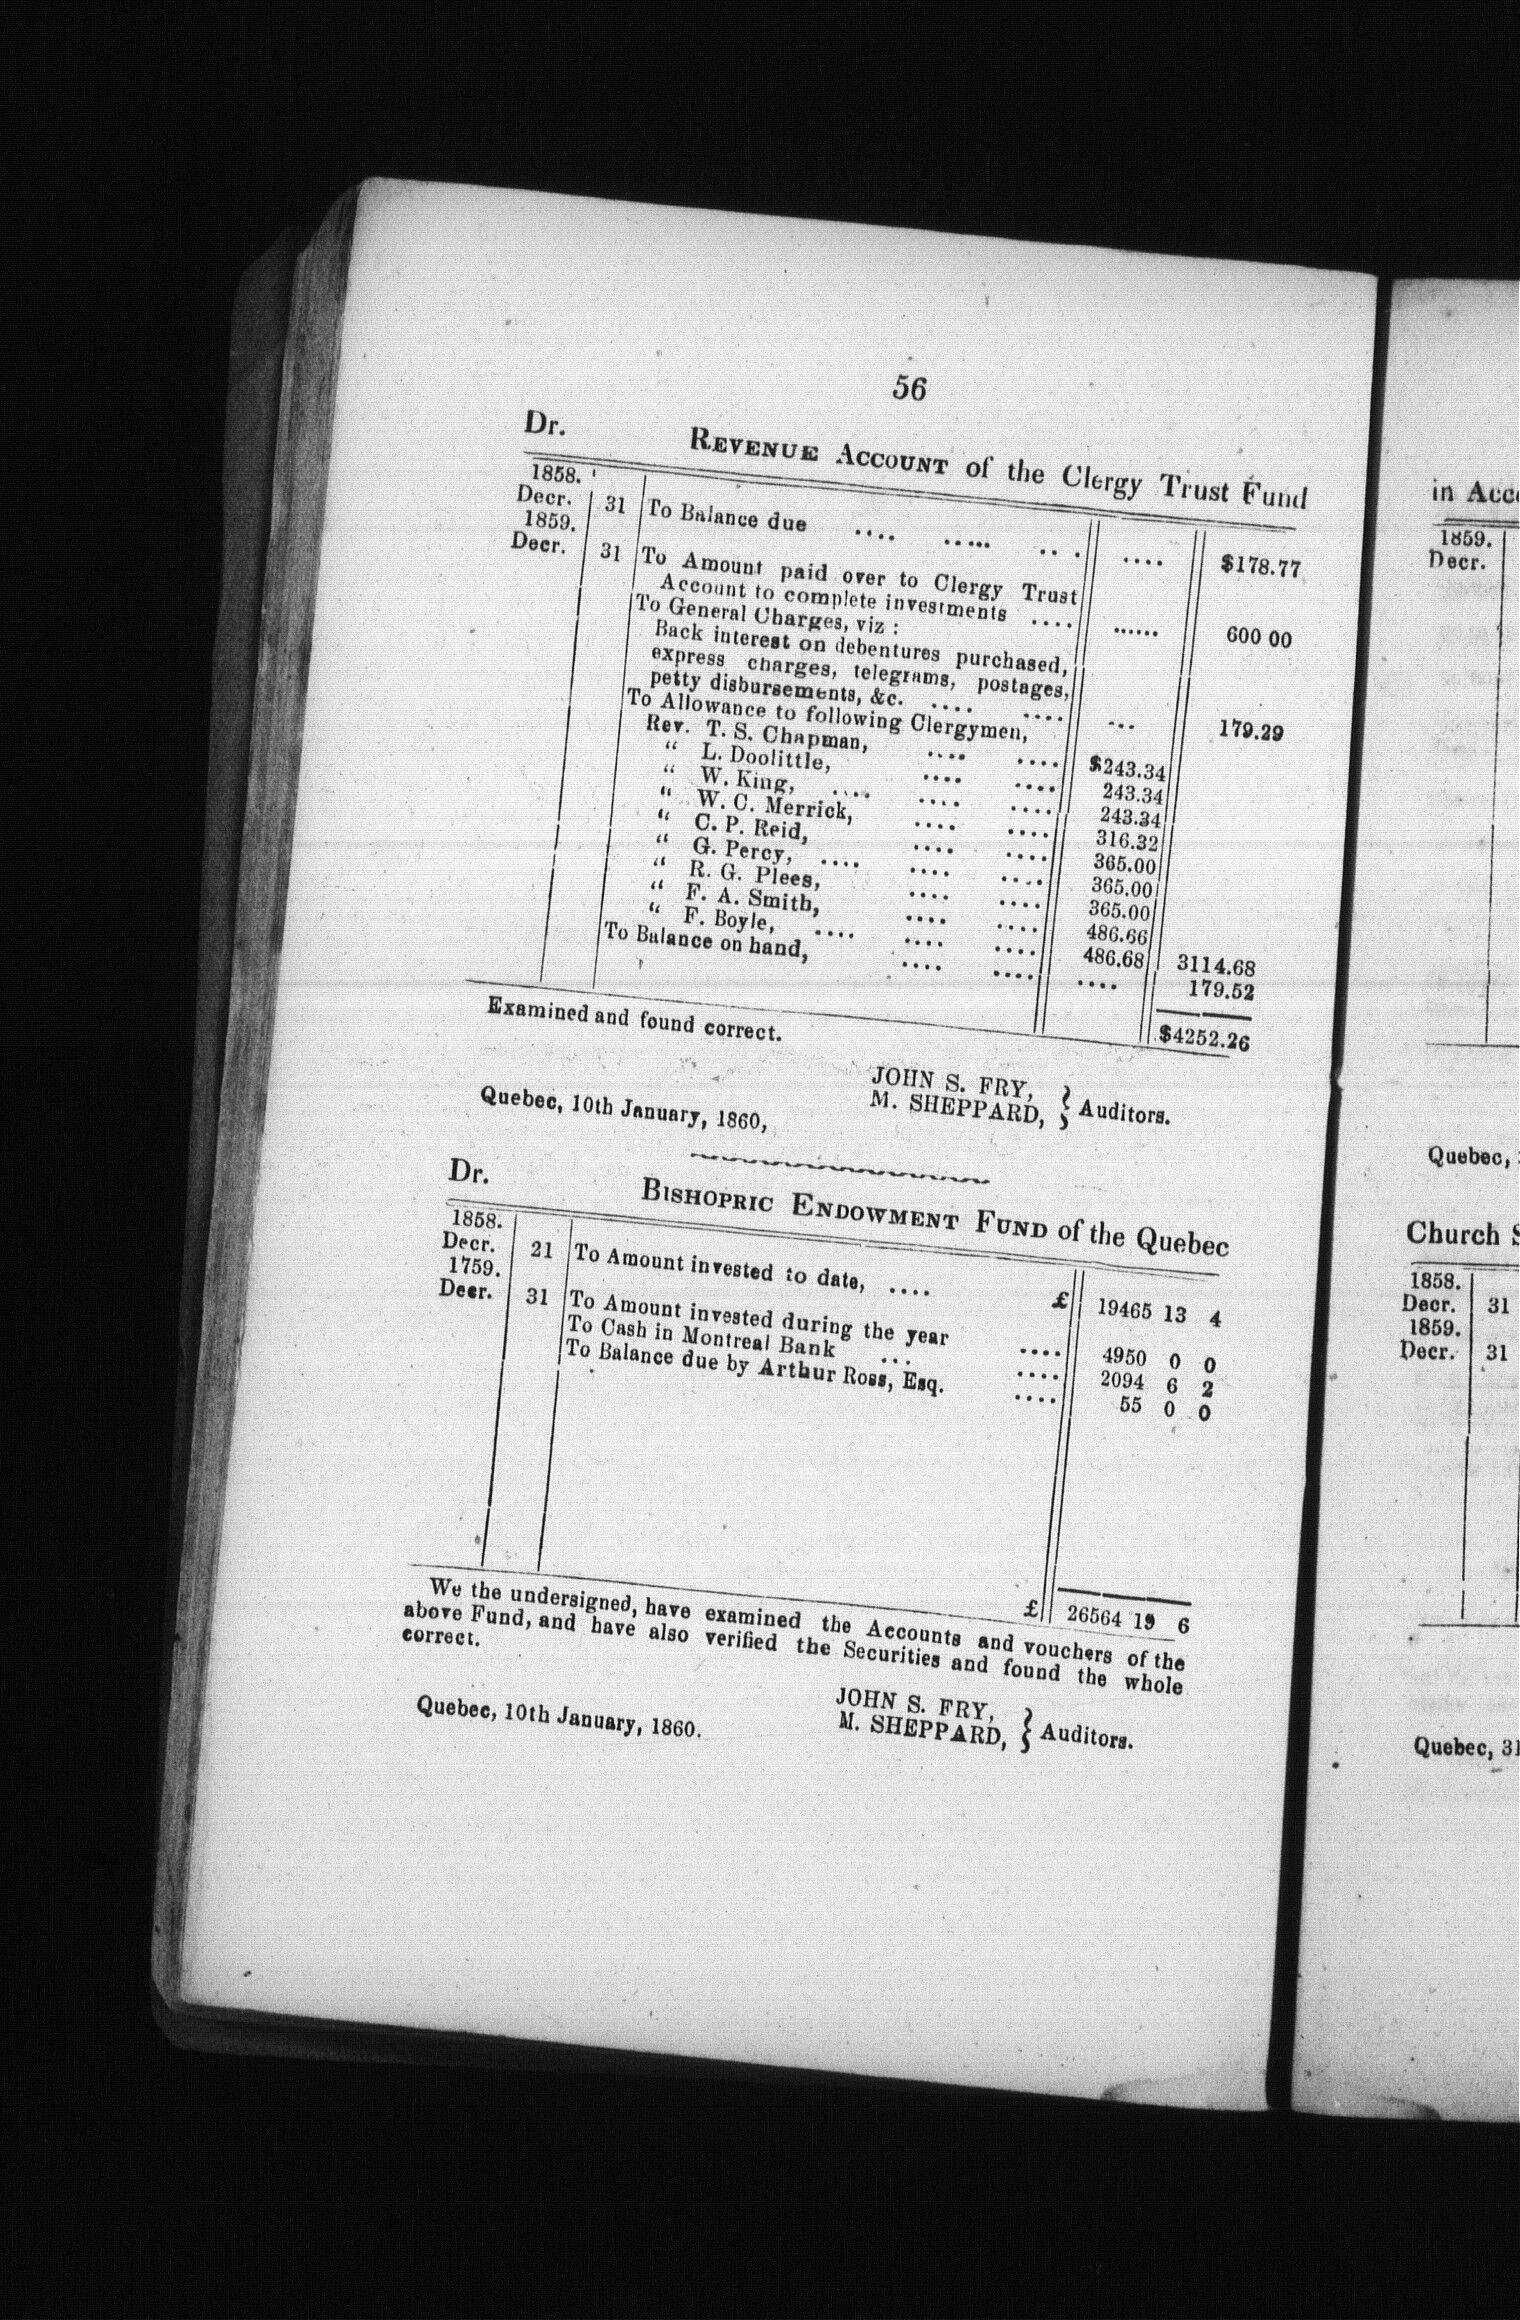 56
Dr. REVENUE ACCOUNT of the Clergy Trust Fund
1858.
Decr. 31 To Balance due .... ..... .. . .... $178.77
1859.
Decr. 31 To Amount paid over to Clergy Trust
Account to complete investments .... ...... 600 00
To General Charges, viz :
Back interest on debentures purchased,
express charges, telegrams, postages,
petty disbursements, &c. .... .... ... 179.29
To Allowance to following Clergymen,
Rev. T. S. Chapman, .... .... $243.34
“ L. Doolittle, .... .... 243.34
“ W. King, .... .... .... 243.34
“ W. C. Merrick, .... .... 316.32
“ C. P. Reid, .... .... 365.00
“ G. Percy, .... .... .... 365.00
“ R. G. Plees, .... .... 365.00
“ F. A. Smith, .... .... 486.66
“ F. Boyle, .... .... .... 486.68 3114.68
To Balance on hand, .... .... .... 179.52
$4252.26
Examined and found correct.
JOHN S. FRY,
M. SHEPPARD, } Auditors.
Quebec, 10th January, 1860,
Dr. BISHOPRIC ENDOWMENT FUND of the Quebec
1858.
Decr. 21 To Amount invested to date, .... £ 19465 13 4
1759.
Decr. 31 To Amount invested during the year .... 4950 0 0
To Cash in Montreal Bank ... .... 2094 6 2
To Balance due by Arthur Ross, Esq. .... 55 0 0
£ 26564 19 6
We the undersigned, have examined the Accounts and vouchers of the
above Fund, and have also verified the Securities and found the whole
correct.
JOHN S. FRY,
M. SHEPPARD, } Auditors.
Quebec, 10th January, 1860.
in Acc
1859.
Decr.
Quebec,
Church S
1858.
Decr. 31
1859.
Decr. 31
Quebec, 31